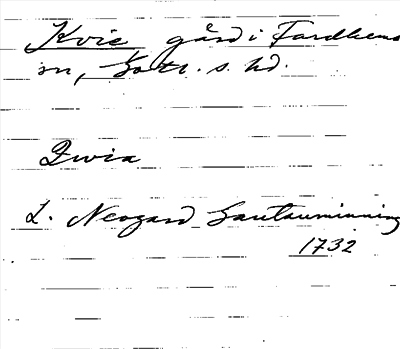 Kvie gård i Fardhems
sn, Gotl. s. hd.
Qwia
L. Neogard Gautauminning
1732